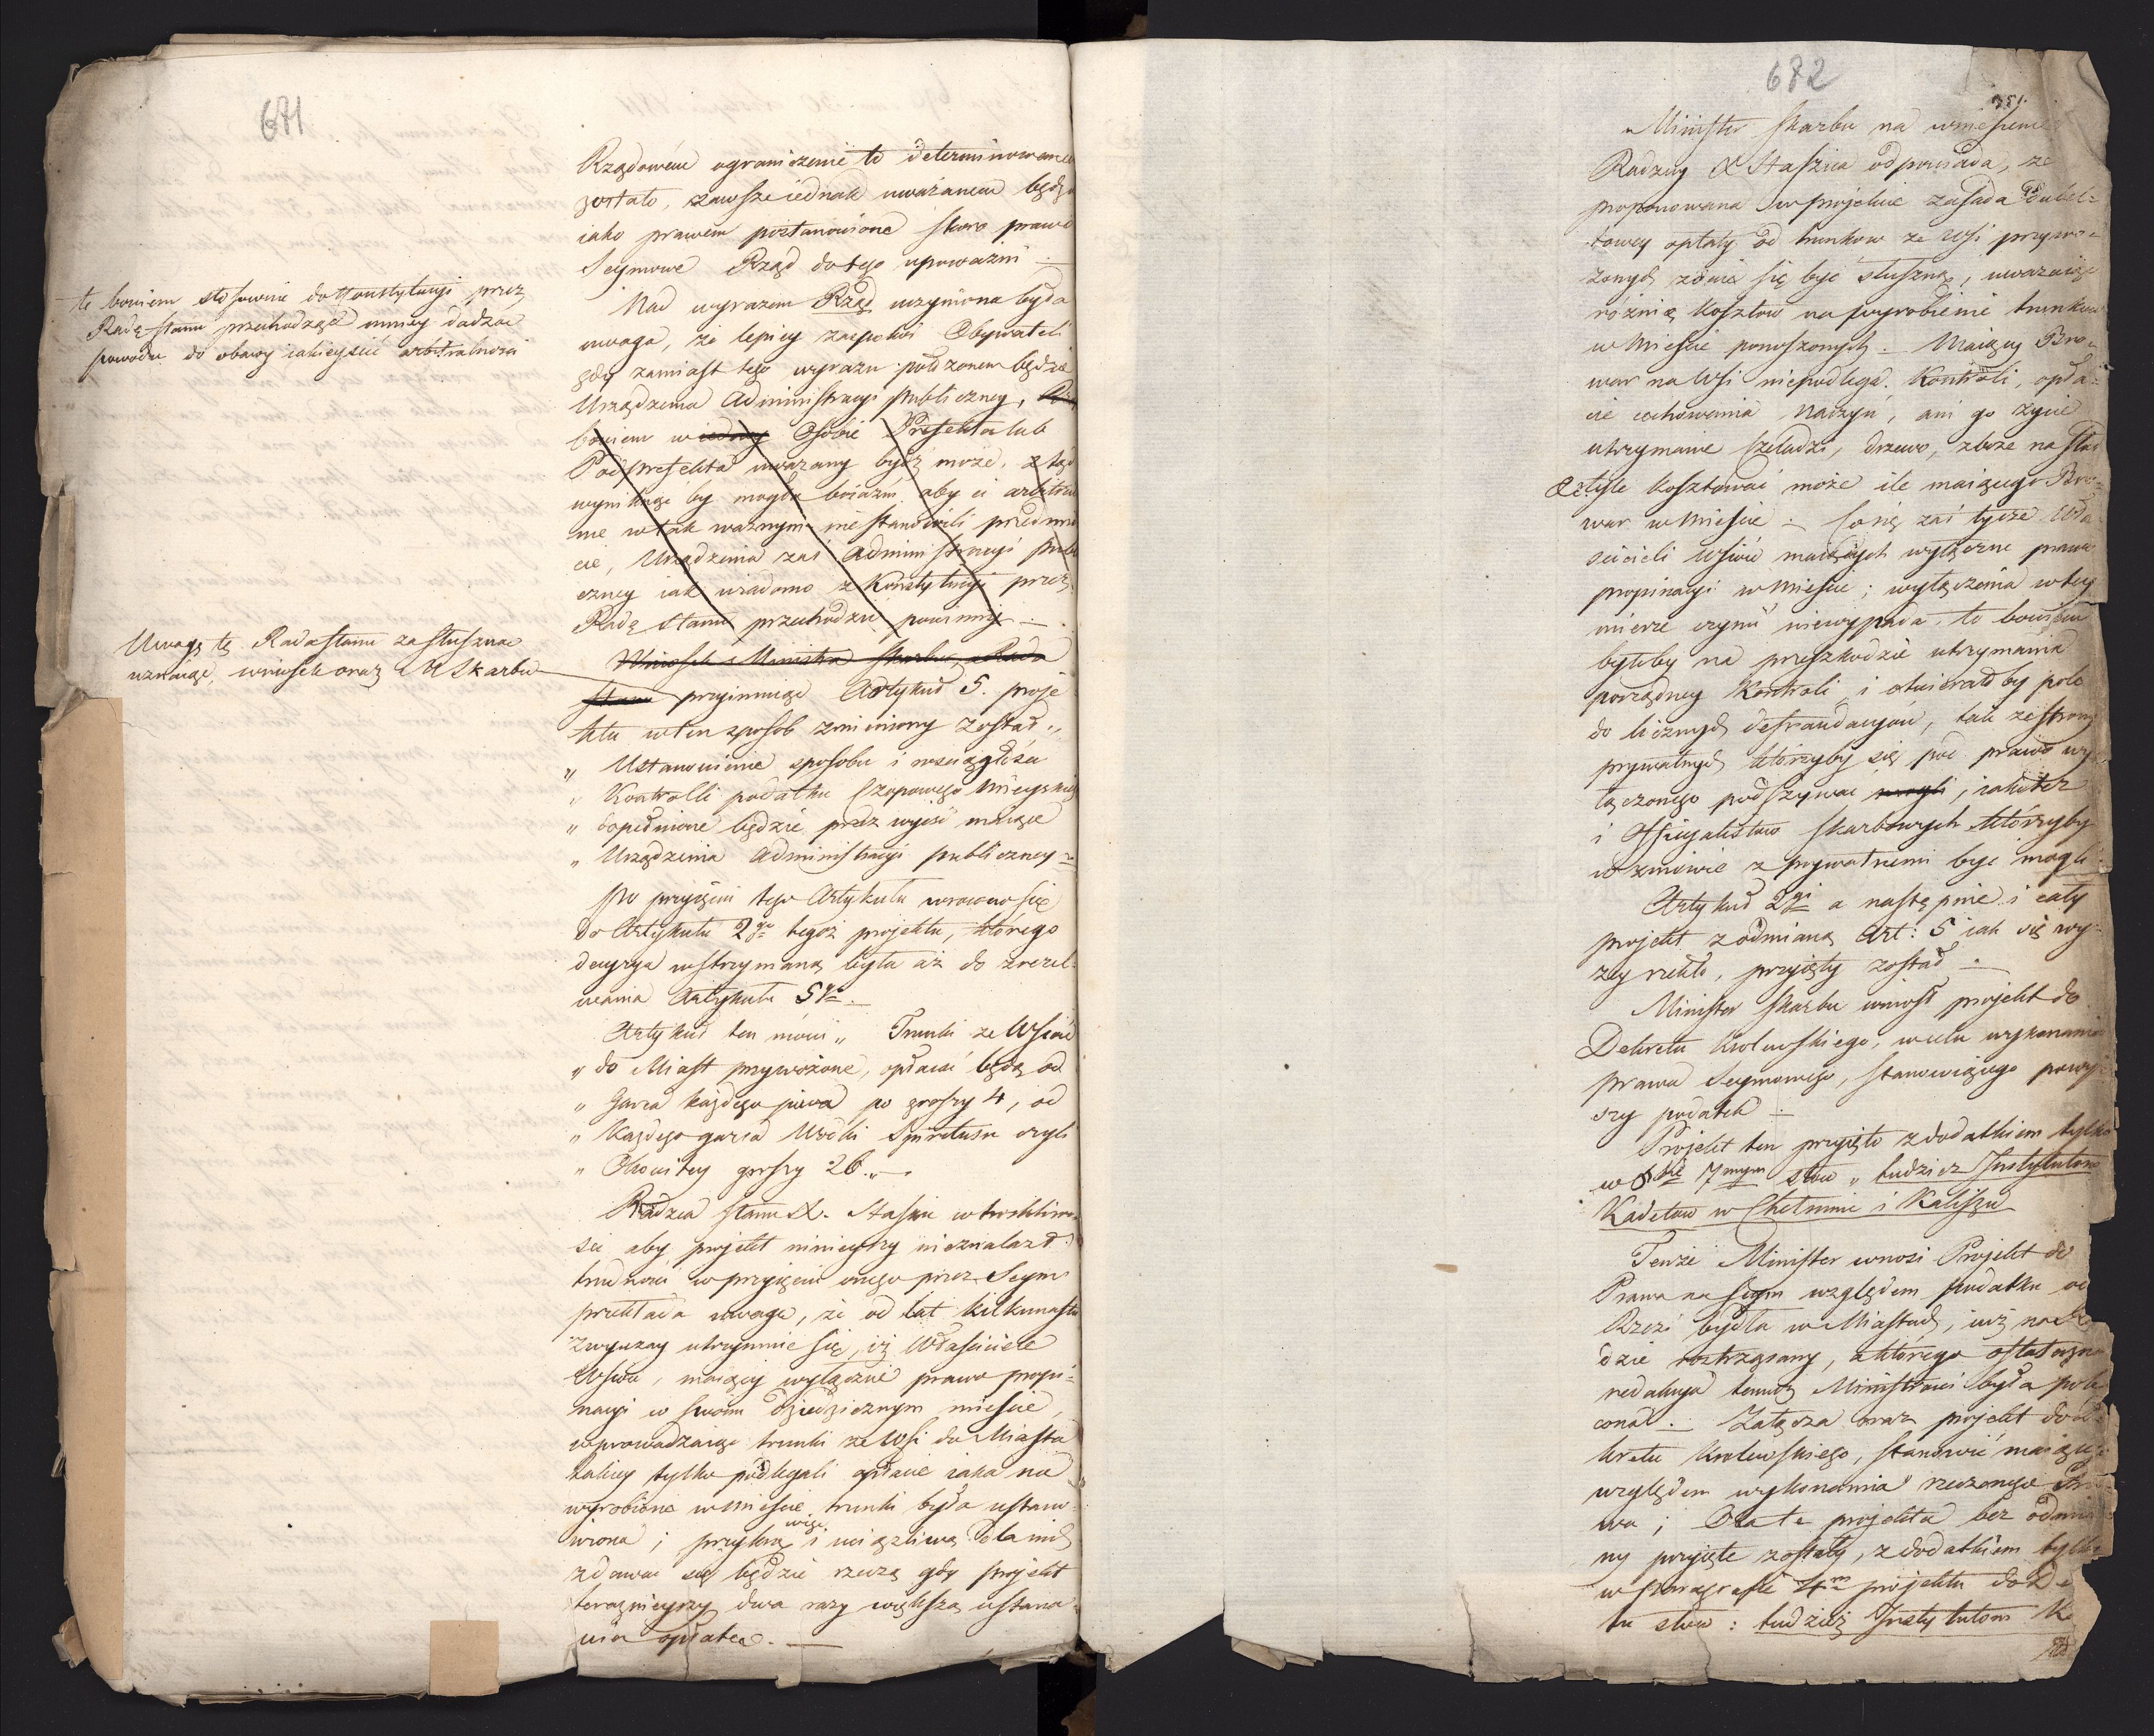 671
Rządowém ograniczenie to determinowane
zostało, zawsze iednak uważanem będzie
iako prawem postanowione skoro prawo
Seymowe Rząd do tego upoważni —
Nad wyrazem Rząd uczyniona była
uwaga, że lepiey zaspokoi Obywateli
gdy zamiast tego wyrazu położonem będzie
Urządzenia Administracyi publiczney,
te bowiem stosownie do Konstytucyi przez
Radę stanu przechodząc mniey dadzą
powodu do obawy iakieyści arbitralności
bowiem w iedney Osobie Prefekta lub
Podprefekta uważany bydź może, ztąd
wyniknąć by mogła boiaźń aby ci
w tak ważnym niestanowili przedmio
cie, Urządzenia zaś Administracyi publi
czney iak wiadomo z Konstytucyi przez
Radę Stanu przechodzić powinny —
Uwagę tę Rada stanu za słuszną
uznaiąc, wniosek oraz M Skarbu
Wniosek Ministra Skarbu, Rada
stanu przyimuiąc Artykuł 5. proje
ktu w ten sposób zmieniony został „
„ Ustanowienie sposobu i rozciągłości
„ Kontrolli podatku Czopowego Mieyskiego
„ dopełnione będzie przez wyiść maiące
„ Urządzenia Administracyi publiczney —
Po przyięciu tego Artykułu wrócono się
do Artykułu 2go tegoż projektu, którego
decyzya wstrzymaną była aż do zrezol-
wania Artykułu 5go —
Artykuł ten mówi „ Trunki ze Wsiów
„ do Miast przywożone, opłacać będą od
„ Garca każdego piwa po groszy 4, od
„ Każdego garca Wódki Spiritusu czyli
„ Okowitey groszy 26 „ —
Radzca stanu X. Staszic w troskliwo-
ści aby projekt ninieyszy nieznalazł
trudności w przyięciu onego przez Seym
przekłada uwagę, że od lat kilkunastu
zwyczay utrzymuie się, iż Właściciele
Wsiów, maiący wyłącznie prawo propi-
nacyi w swoim dziedzicznym mieście,
wprowadzaiąc trunki ze Wsi do Miasta
takiey tylko podlegali opłacie iaka na
wyrobione w mieście trunki była ustano-
wiona; przykrą więc i uciążliwą dla nich
zdawać się będzie rzeczą gdy projekt
teraznieyszy dwa razy większą ustana-
wia opłatę. —
682
351.
Minister Skarbu na wniesienie
Radzcy X Staszica odpowiada, że
proponowana w projekcie zasada dubel-
towey opłaty od trunkow ze Wsi przywo-
żonych zdaie się być słuszną, uważaiąc
różnicę kosztow na wyrobienie trunkow
w Mieście ponoszonych — Maiący Bro-
war na Wsi niepodlega Kontroli, opła-
cie cechowania Naczyń, ani go życie
utrzymanie Czeladzi, drzewo, zboże na słod
&c tyle kosztować może ile maiącego Bro-
war w Mieście — Co się zaś tycze Wła-
ścicieli Wsiów maiących wyłączne prawo
propinacyi w Mieście; wyłączenia w tey
mierze czynić niewypada, to bowiem
byłoby na przeszkodzie utrzymania
porządney Kontroli i otwierałoby pole
do licznych defraudacyów, tak ze strony
prywatnych którzyby się pod prawo wy-
łączonego podszywać mogli, iako też
i Officyalistów skarbowych którzyby
w zmowie z prywatnemi być mogli
Artykuł 2gi a następnie i cały
projekt z odmianą Art: 5 iak się wy-
żey rzekło, przyięty został —
Minister Skarbu wniosł projekt do
Dekretu Krolewskiego, w celu wykonania
prawa Seymowego, stanowiącego powyż
szy podatek —
Projekt ten przyięto z dodatkiem tylko
w 7mym słów „ tudzież Instytutom
Kadetow w Chełmnie i Kaliszu
Tenże Minister wnosi Projekt do
Prawa na Seym względem podatku od
Rzezi bydła w Miastach, iuż na Ra
dzie roztrząsany, a którego ostateczna
redakcya temuż Ministrowi była pole
cona — Załącza oraz projekt do de
kretu Krolewskiego, stanowić maiącego
względem wykonania rzeczonego Pra
wa; Oba te projekta bez odmia
ny przyięte zostały, z dodatkiem tylko
w paragrafie 4m projektu do De
tu słów: tudzież Instytutom Ka